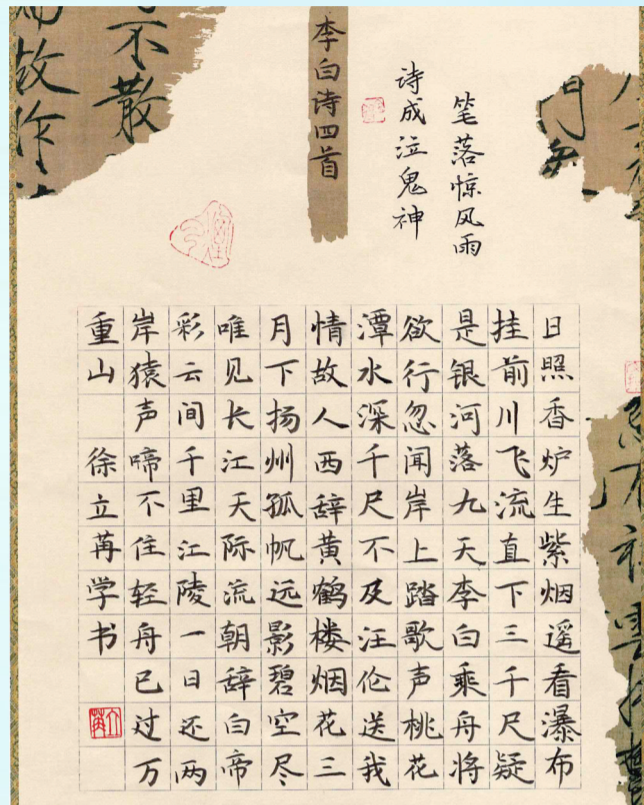 李白诗四首
笔落惊风雨
诗成泣鬼神
不散
故作
门
日照香炉生紫烟遥看瀑布
挂前川飞流直下三千尺疑
是银河落九天李白乘舟将
欲行忽闻岸上踏歌声桃花
潭水深千尺不及汪伦送我
情故人西辞黄鹤楼烟花三
月下扬州孤帆远影碧空尽
唯见长江天际流朝辞白帝
彩云间千里江陵一日还两
岸猿声啼不住轻舟已过万
重山 徐立苒学书
立苒